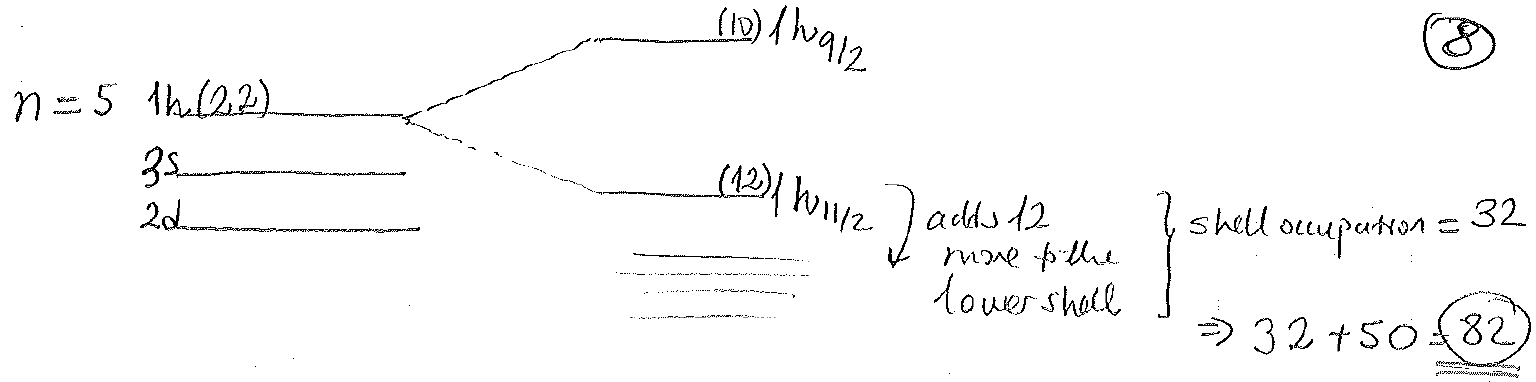 (10) 1h9/2
8
n = 5 1h (22)
3s
2d
(12) 1h11/2
adds 12
more to the
lower shell
shell occupation = 32
⇒ 32 + 50 = 82